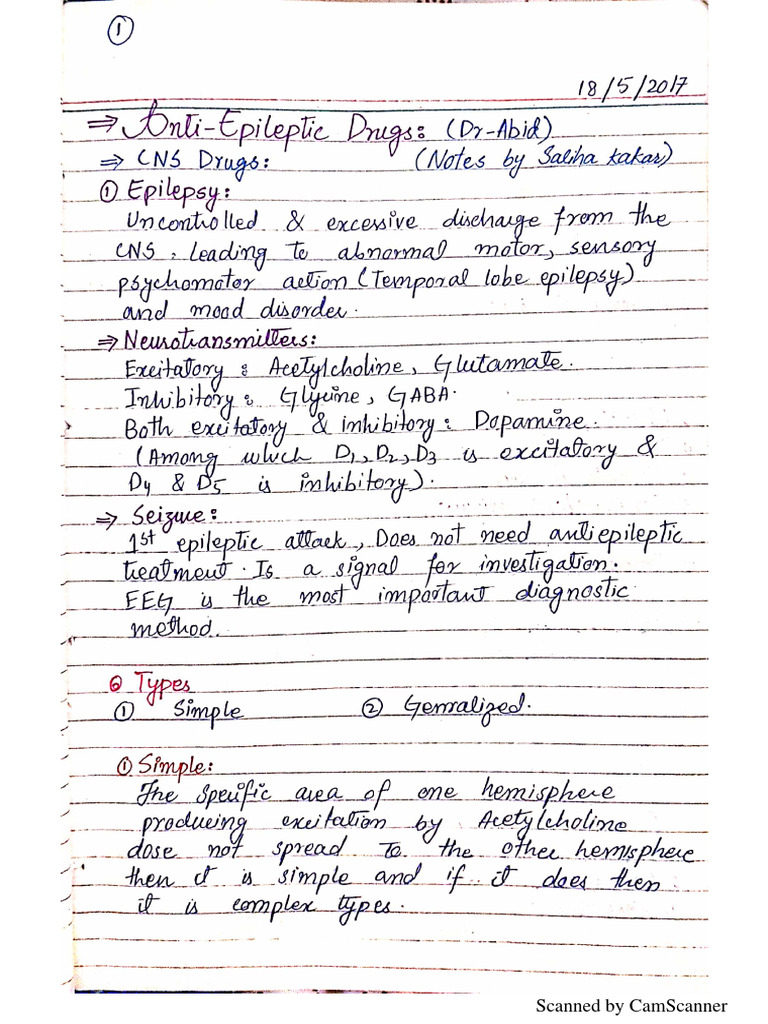 1
18/5/2017
⇒ Anti-Epileptic Drugs: (Dr-Abid)
⇒ CNS Drugs: (Notes by Saliha Kakar)
① Epilepsy:
Uncontrolled & excessive discharge from the
CNS, leading to abnormal motor, sensory
psychomotor action (Temporal lobe epilepsy)
and mood disorder.
⇒ Neurotransmitters:
Excitatory : Acetylcholine, Glutamate.
Inhibitory : Glycine, GABA.
Both excitatory & inhibitory : Dopamine.
(Among which D1, D2, D3 is excitatory &
D4 & D5 is inhibitory).
⇒ Seizure:
1st epileptic attack, Does not need antiepileptic
treatment. Is a signal for investigation.
EEG is the most important diagnostic
method.
Types
① Simple ② Genralized.
① Simple:
The specific area of one hemisphere
producing excitation by Acetylcholine
dose not spread to the other hemsphere
then it is simple and if it does then
it is complex types.
Scanned by CamScanner